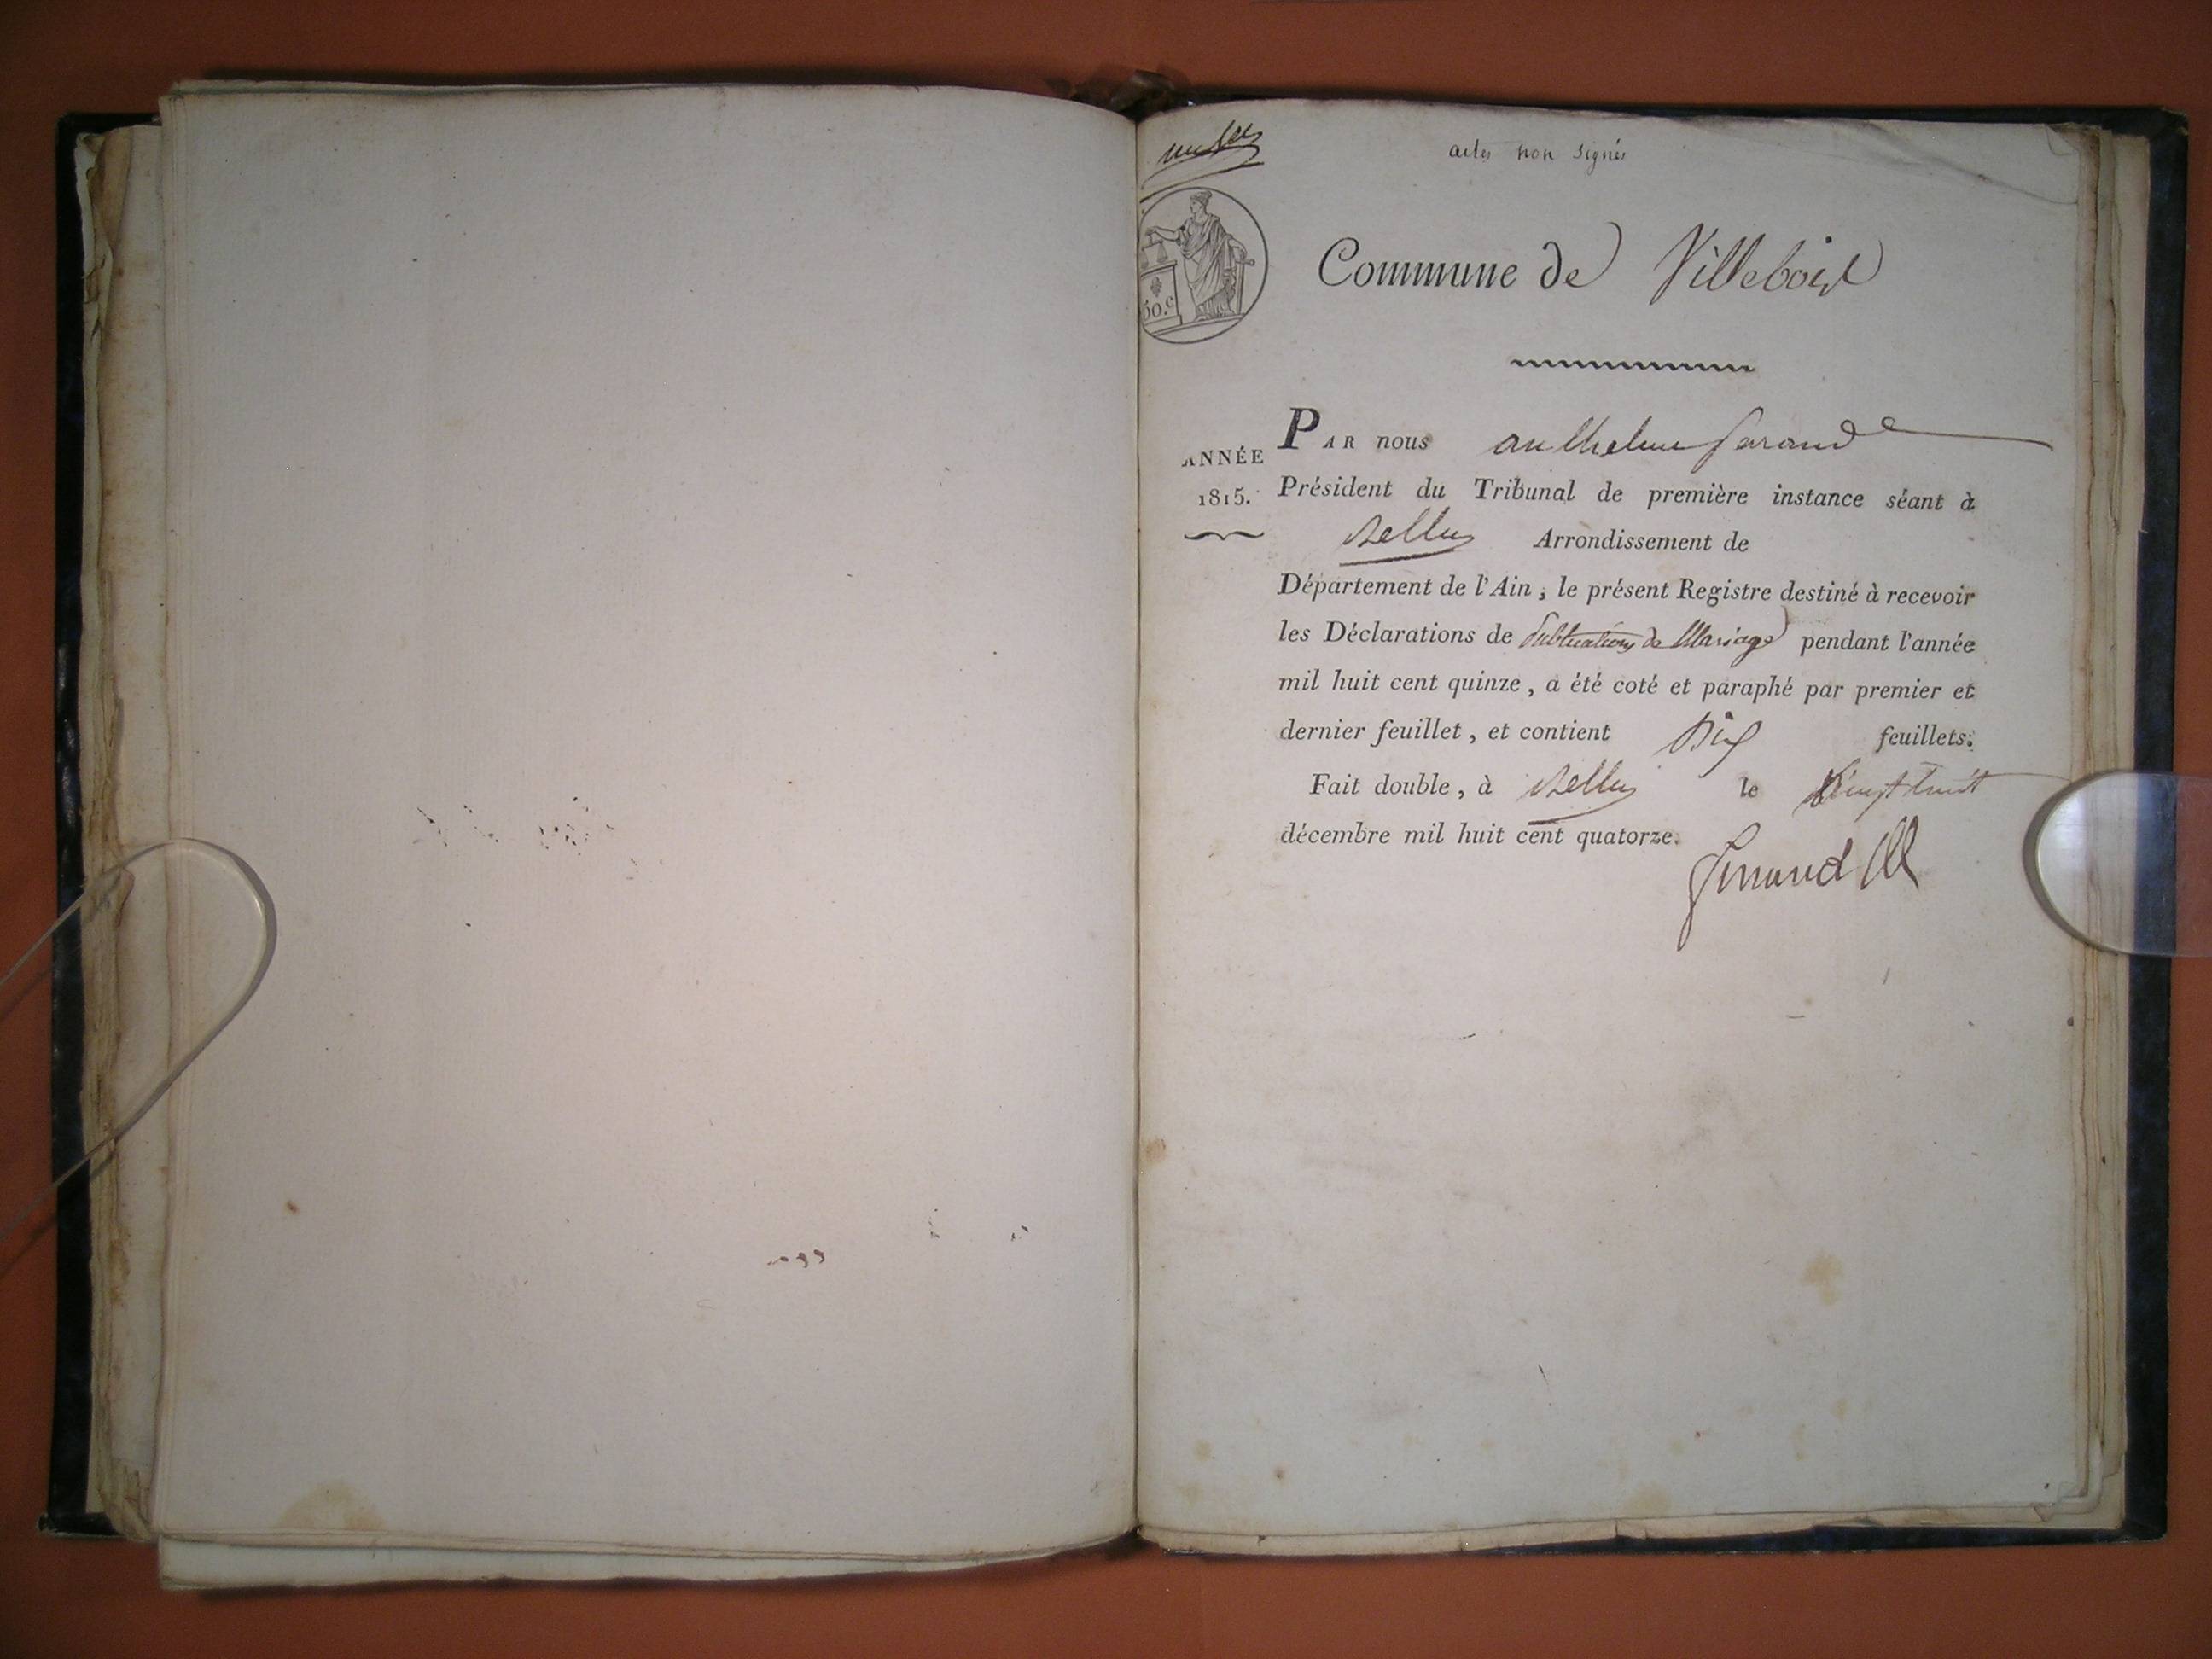 actes non signés
50.c
Commune de Villebois
PAR nous anthelme
ANNÉE
1815.
Président du Tribunal de première instance séant à
Belley Arrondissement de
Département de l'Ain, le présent Registre destiné à recevoir
les Déclarations de Publications de Mariage pendant l'année
mil huit cent quinze, a été coté et paraphé par premier et
dernier feuillet, et contient feuillets.
Fait double, à Belley le vingt huit
décembre mil huit cent quatorze.